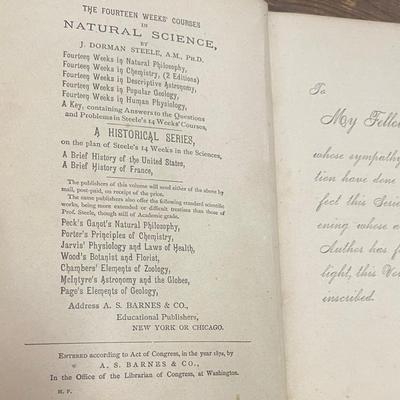 THE FOURTEEN WEEKS' COURSES
IN
NATURAL SCIENCE,
BY
J. DORMAN STEELE, A.M., PH.D.
Fourteen Weeks in Natural Philosophy,
Fourteen Weeks in Chemistry, (2 Editions)
Fourteen Weeks in Descriptive Astronomy,
Fourteen Weeks in Popular Geology,
Fourteen Weeks in Human Physiology,
A Key, containing Answers to the Questions
and Problems in Steele's 14 Weeks' Courses,
A HISTORICAL SERIES,
on the plan of Steele's 14 Weeks in the Sciences,
A Brief History of the United States,
A Brief History of France,
The publishers of this volume will send either of the above by
mail, post-paid, on receipt of the price.
The same publishers also offer the following standard scientific
works, being more extended or difficult treatises than those of
Prof. Steele, though still of Academic grade.
Peck's Ganot's Natural Philosophy,
Porter's Principles of Chemistry,
Jarvis' Physiology and Laws of Health,
Wood's Botanist and Florist,
Chambers' Elements of Zoology,
McIntyre's Astronomy and the Globes,
Page's Elements of Geology,
Address A. S. BARNES & CO.,
Educational Publishers,
NEW YORK OR CHICAGO.
ENTERED according to Act of Congress, in the year 1870, by
A. S. BARNES & CO.,
In the Office of the Librarian of Congress, at Washington.
H. P.
To
My Fello
whose sympathy
tion have done
fect this Scie
ening whose
Author has f
light, this Vo
inscribed.